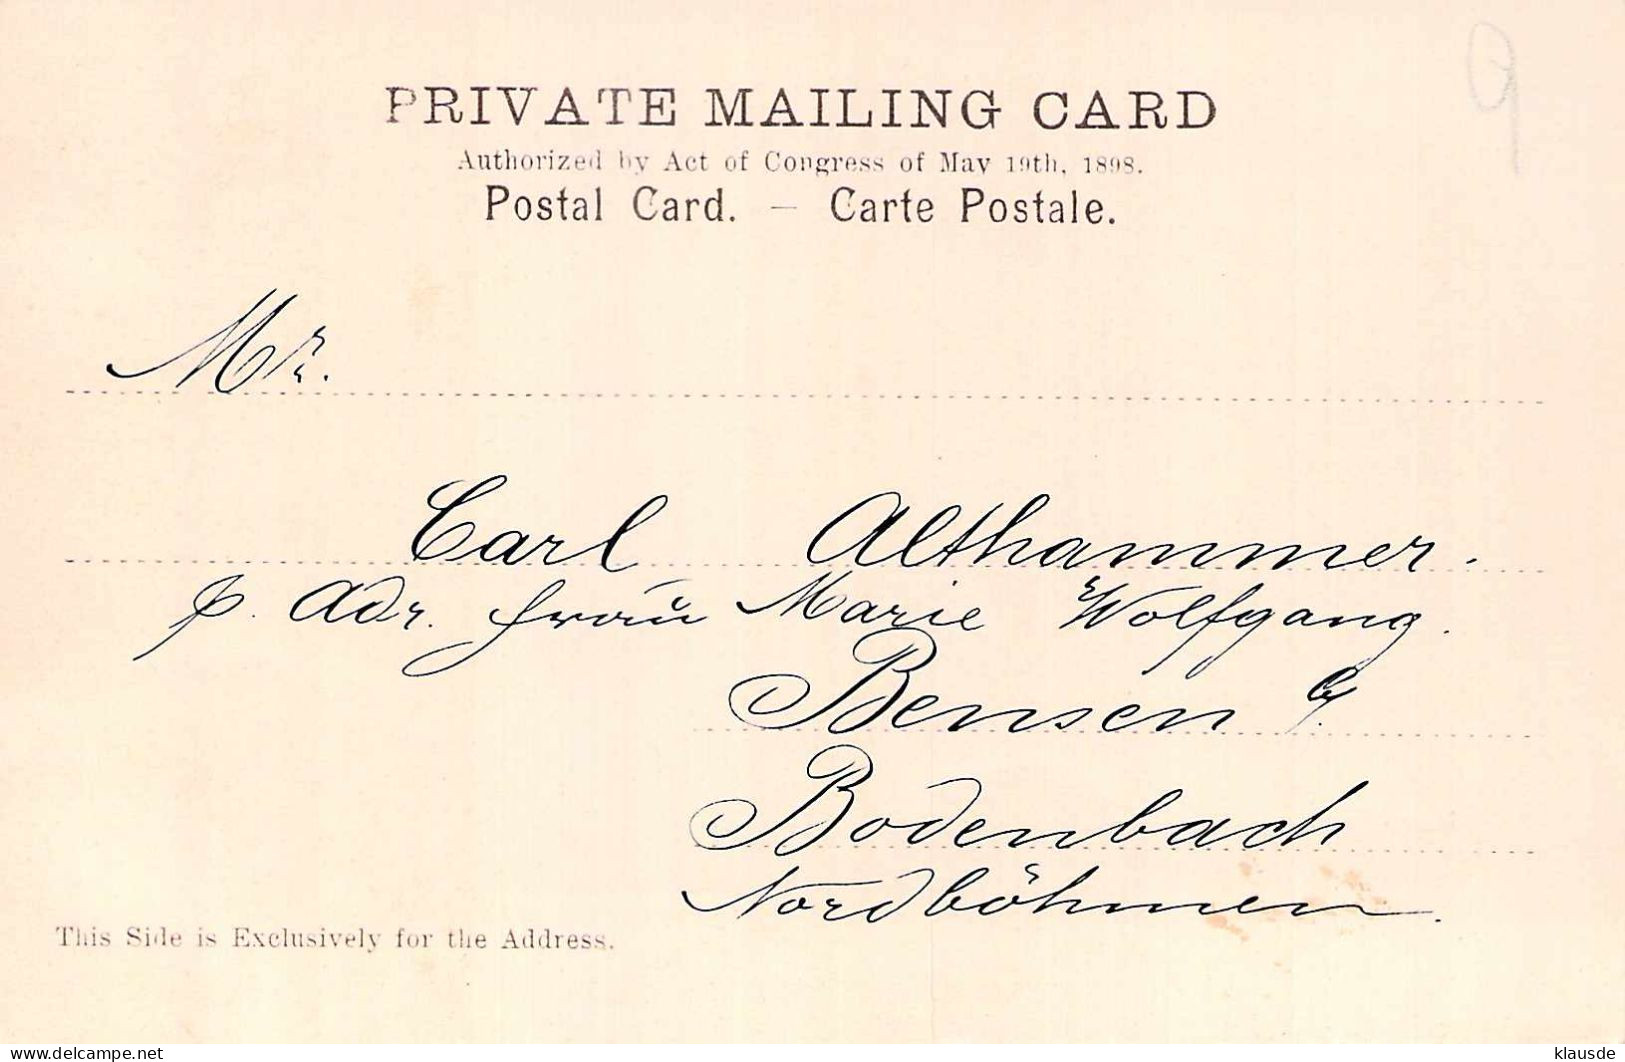 PRIVATE MAILING CARD
Authorized by Act of Congress of May 19th, 1898.
Postal Card. — Carte Postale.
9
Mr.
Carl Althammer.
p. Adr. Frau Marie Wolfgang.
Bensen b/.
Bodenbach
Nordböhmen.
This Side is Exclusively for the Address.
www.delcampe.net
klausde